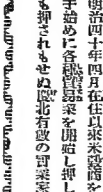 明治四十年四月在住以來米穀商
手始めに各種貿易業を開始し押し
も押されもせぬ鎮北有數の實業家